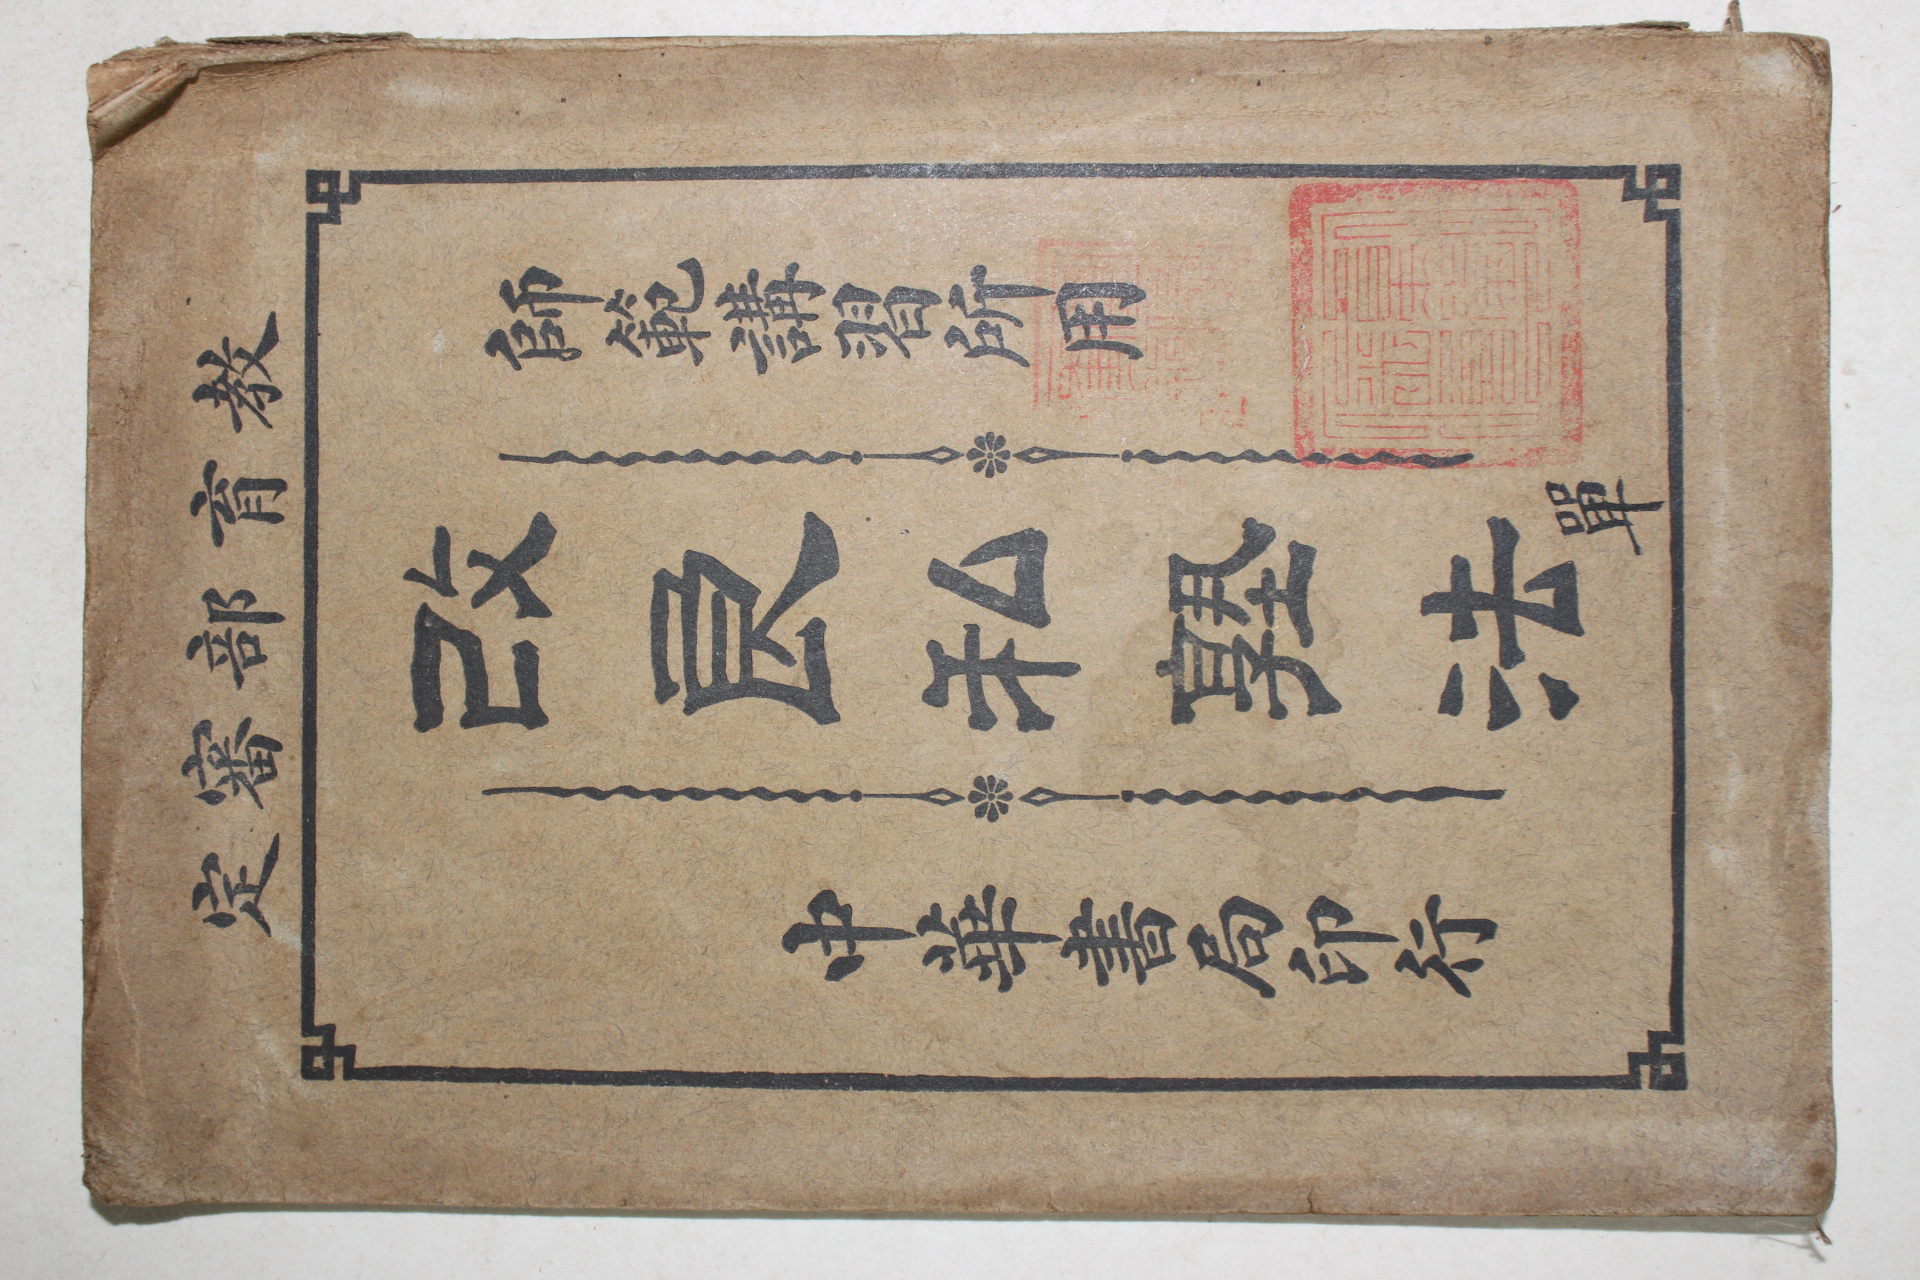 教育部審定
師範講習所用
改良私塾法
單
中華書局印行